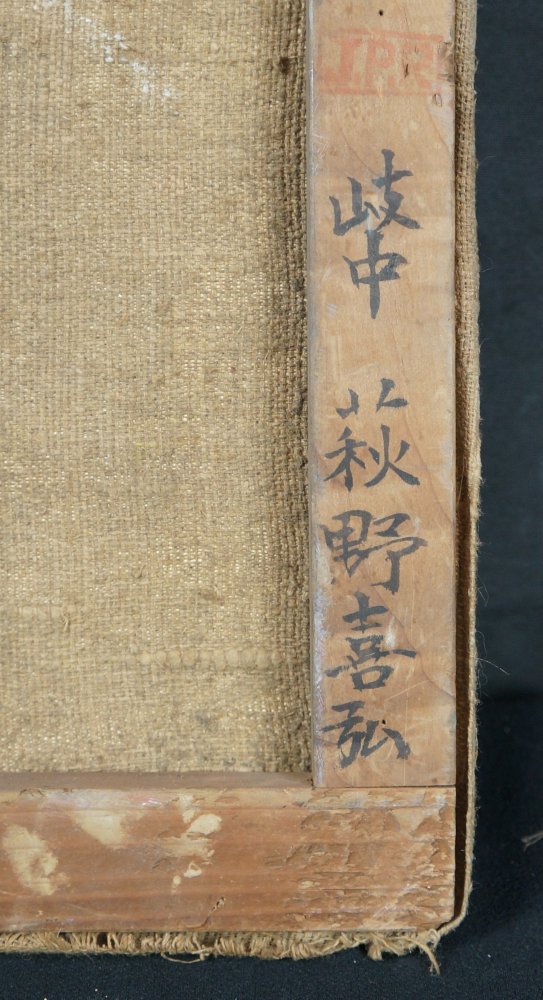 JPR
岐中 萩野喜弘